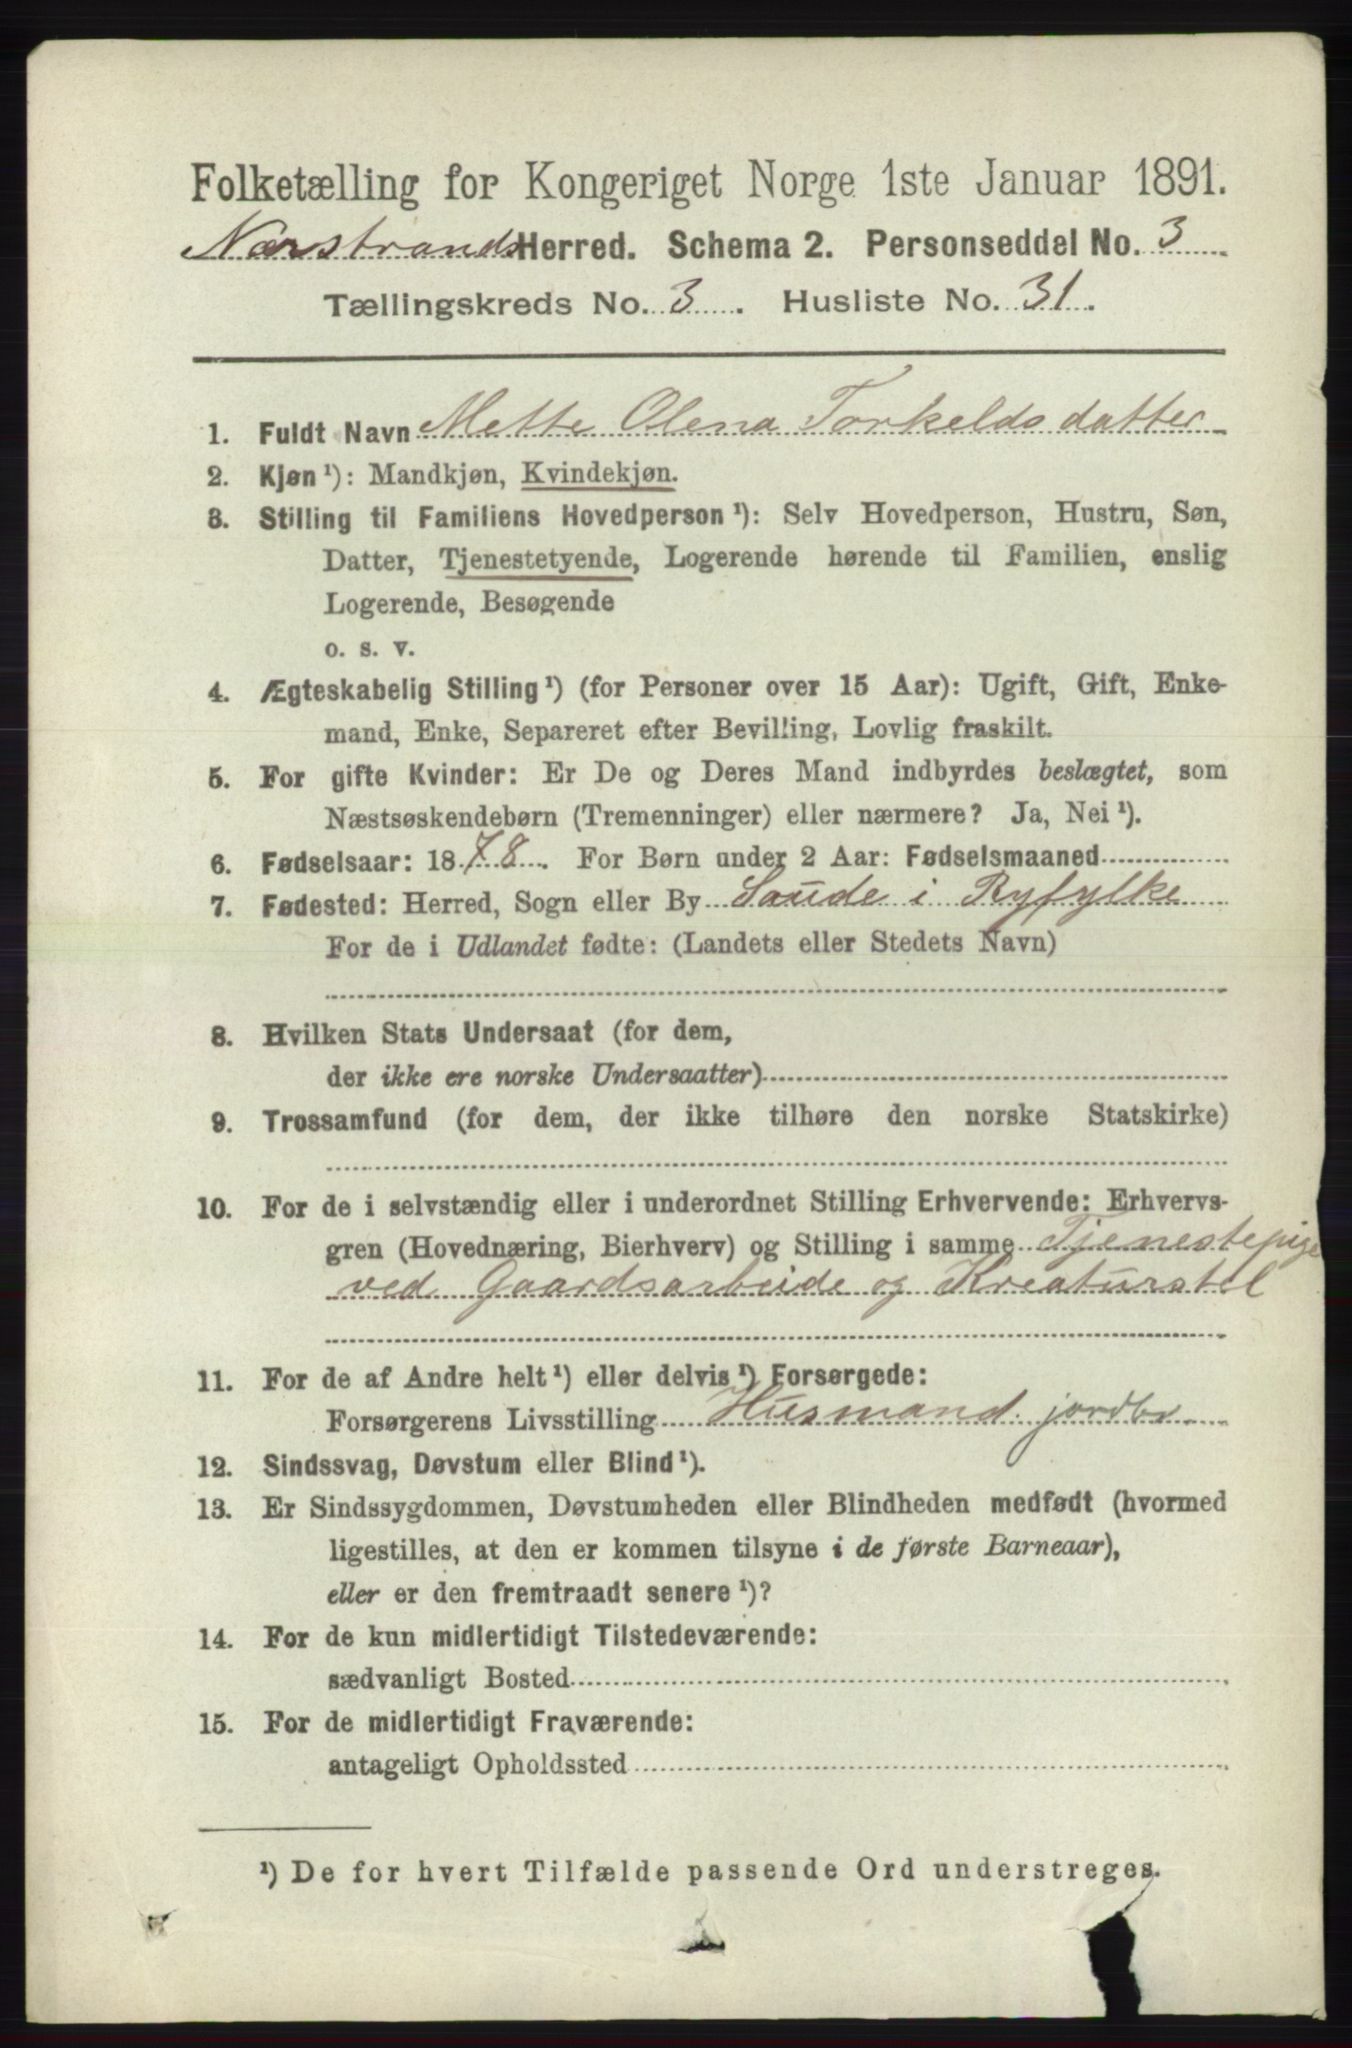 Folketælling for Kongeriget Norge 1ste Januar 1891.
Nærstrands Herred. Schema 2. Personseddel No. 3
Tællingskreds No. 3. Husliste No. 31.
1. Fuldt Navn Mette Olena Torkeldsdatter
2. Kjøn ¹): Mandkjøn, Kvindekjøn.
3. Stilling til Familiens Hovedperson ¹): Selv Hovedperson, Hustru, Søn,
Datter, Tjenestetyende, Logerende hørende til Familien, enslig
Logerende, Besøgende
o. s. v.
4. Ægteskabelig Stilling ¹) (for Personer over 15 Aar): Ugift, Gift, Enke-
mand, Enke, Separeret efter Bevilling, Lovlig fraskilt.
5. For gifte Kvinder: Er De og Deres Mand indbyrdes beslægtet, som
Næstsøskendebørn (Tremenninger) eller nærmere? Ja, Nei ¹).
6. Fødselsaar: 1878. For Børn under 2 Aar: Fødselsmaaned
7. Fødested: Herred, Sogn eller By Saude i Ryfylke
For de i Udlandet fødte: (Landets eller Stedets Navn)
8. Hvilken Stats Undersaat (for dem,
der ikke ere norske Undersaatter)
9. Trossamfund (for dem, der ikke tilhøre den norske Statskirke)
10. For de i selvstændig eller i underordnet Stilling Erhvervende: Erhvervs-
gren (Hovednæring, Bierhverv) og Stilling i samme Tjenestepige
ved Gaardsarbeide og Kreaturstel
11. For de af Andre helt ¹) eller delvis ¹) Forsørgede:
Forsørgerens Livsstilling Husmand. jordbr
12. Sindssvag, Døvstum eller Blind ¹).
13. Er Sindssygdommen, Døvstumheden eller Blindheden medfødt (hvormed
ligestilles, at den er kommen tilsyne i de første Barneaar),
eller er den fremtraadt senere ¹)?
14. For de kun midlertidigt Tilstedeværende:
sædvanligt Bosted
15. For de midlertidigt Fraværende:
antageligt Opholdssted
¹) De for hvert Tilfælde passende Ord understreges.